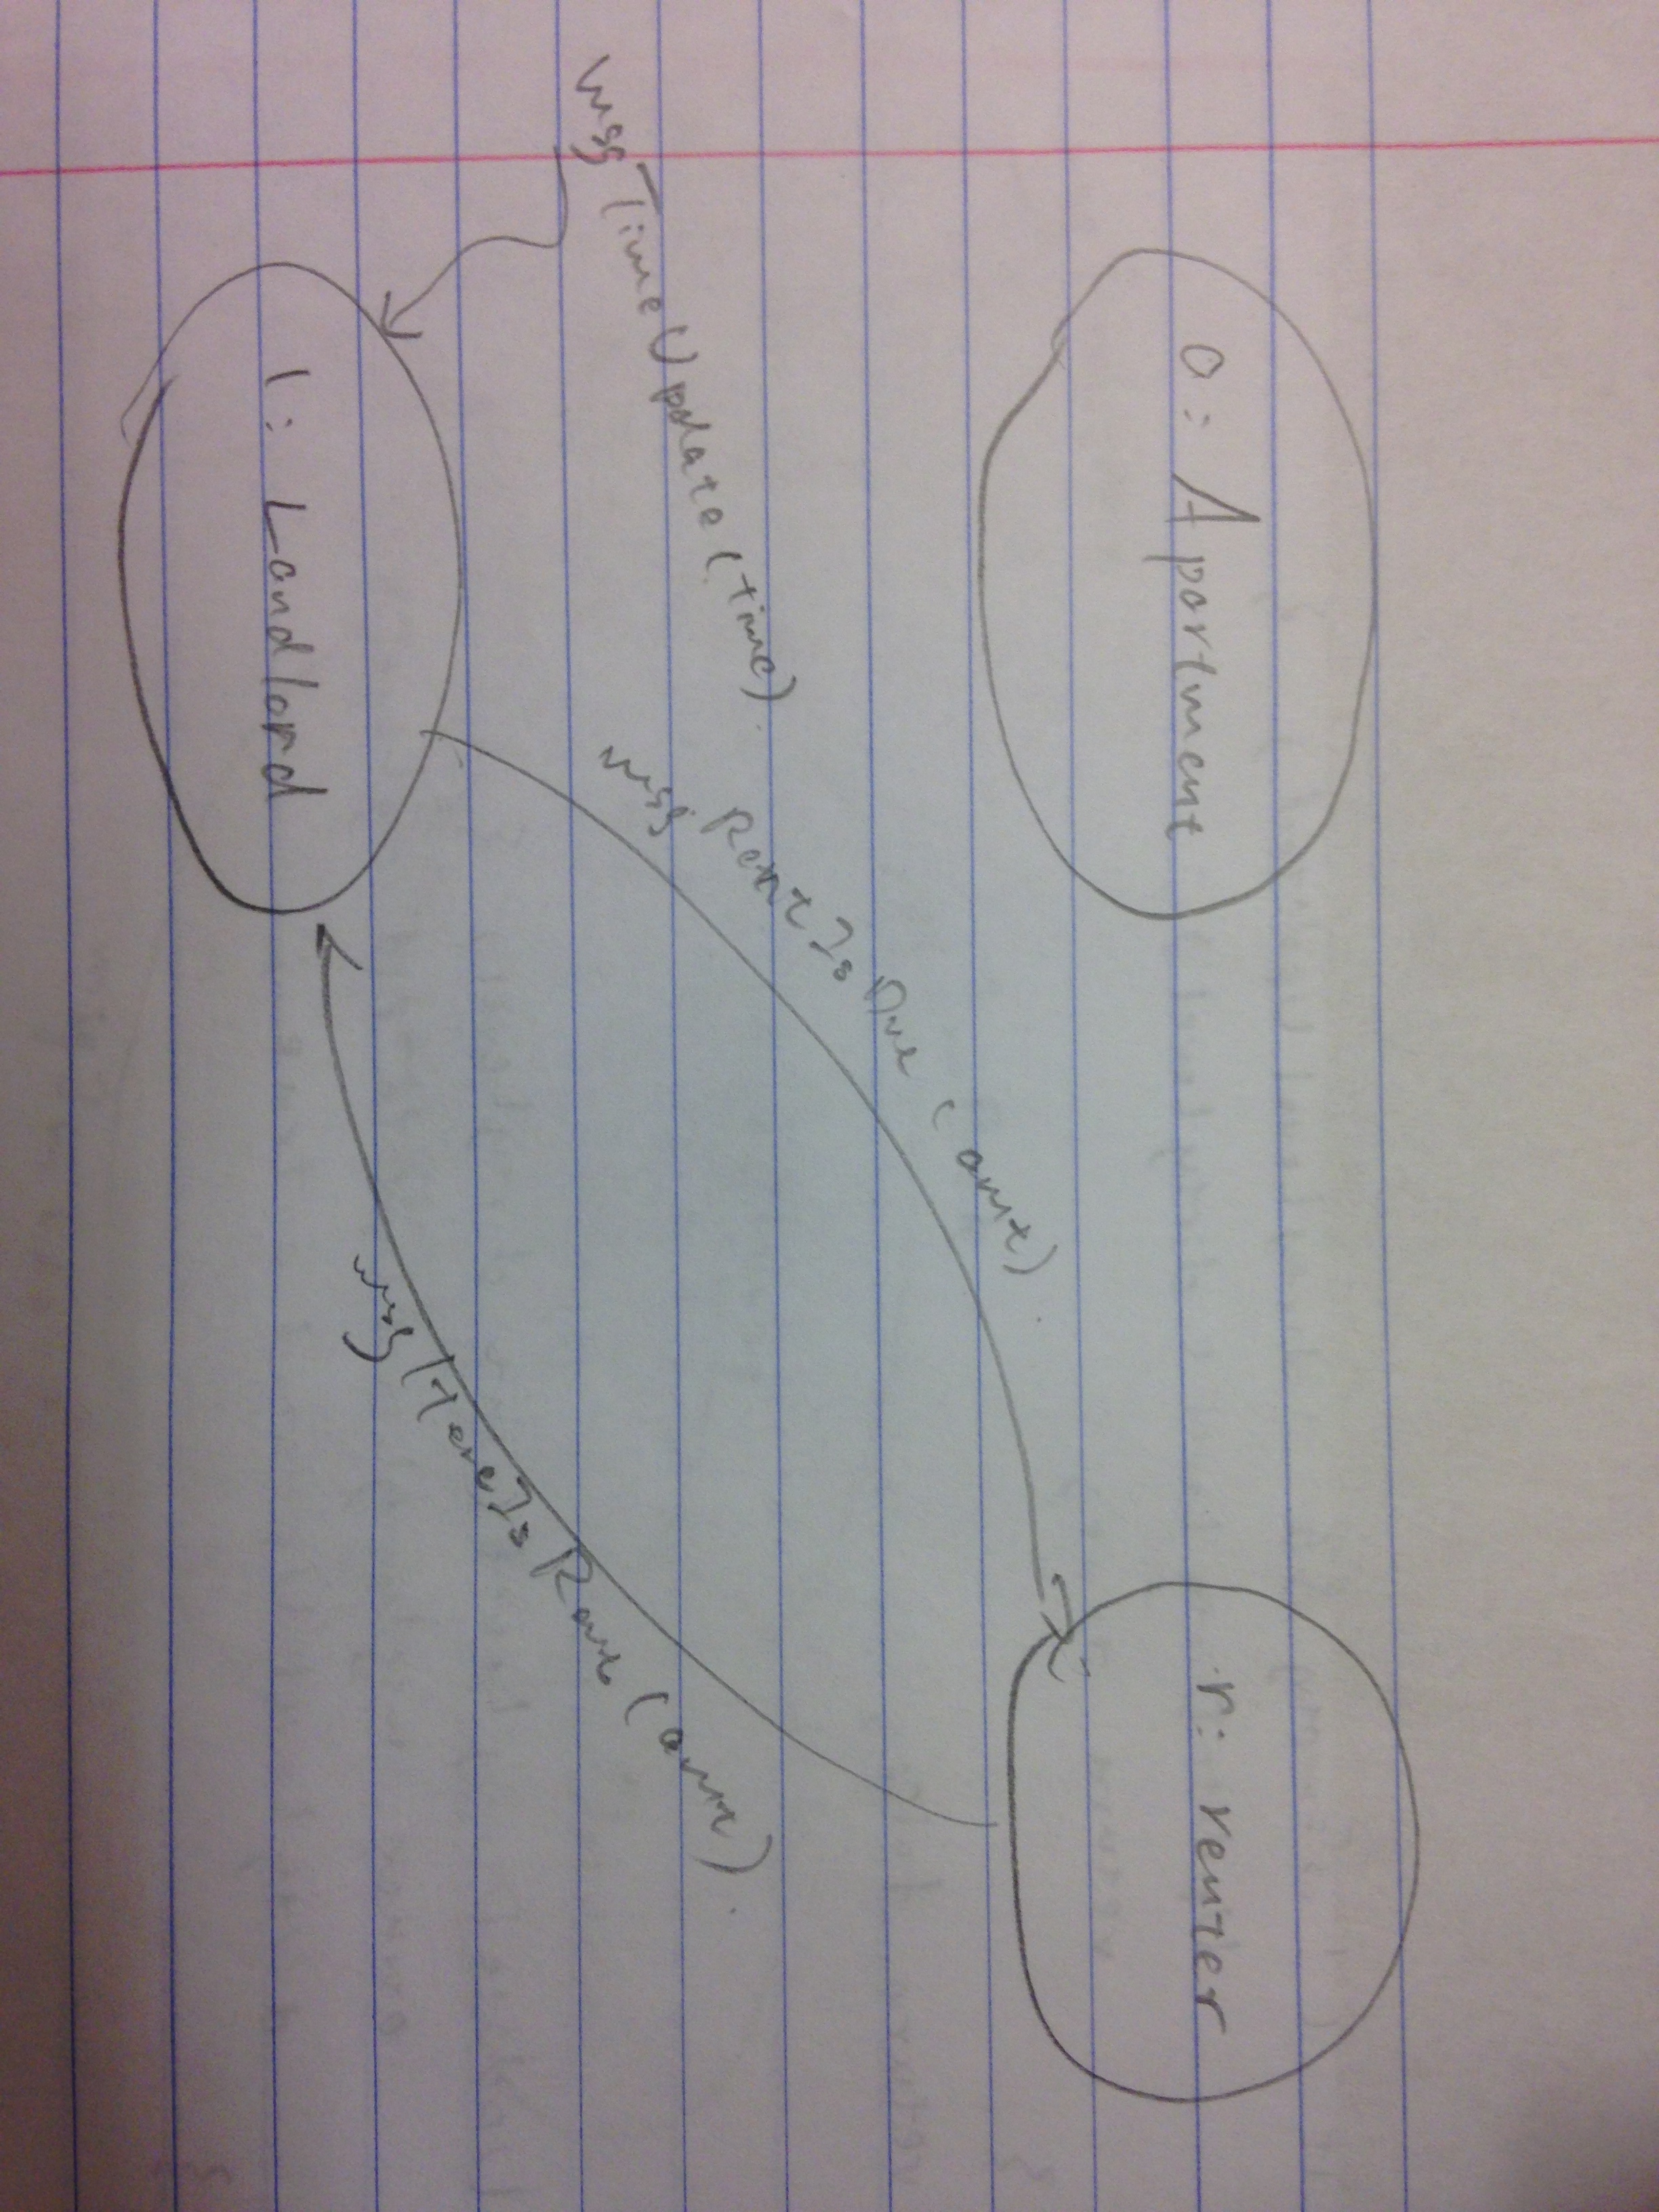 a: Apartment
r: renter
msgRentIsDue(amt).
msgTimeUpdate(time).
msgHereIsRent(amt).
l: Landlord